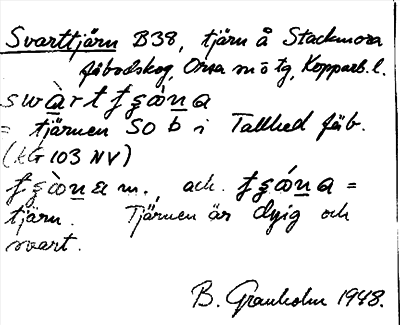 Svarttjärn B38, tjärn å Stackmora
fäbodskog, Orsa sn ö tg, Kopparb. l.
= tjärnen SO b i Tallhed fäb.
(kG 103 NV)
m., ack. =
tjärn. Tjärnen är dyig och
svart.
B. Granholm 1948.